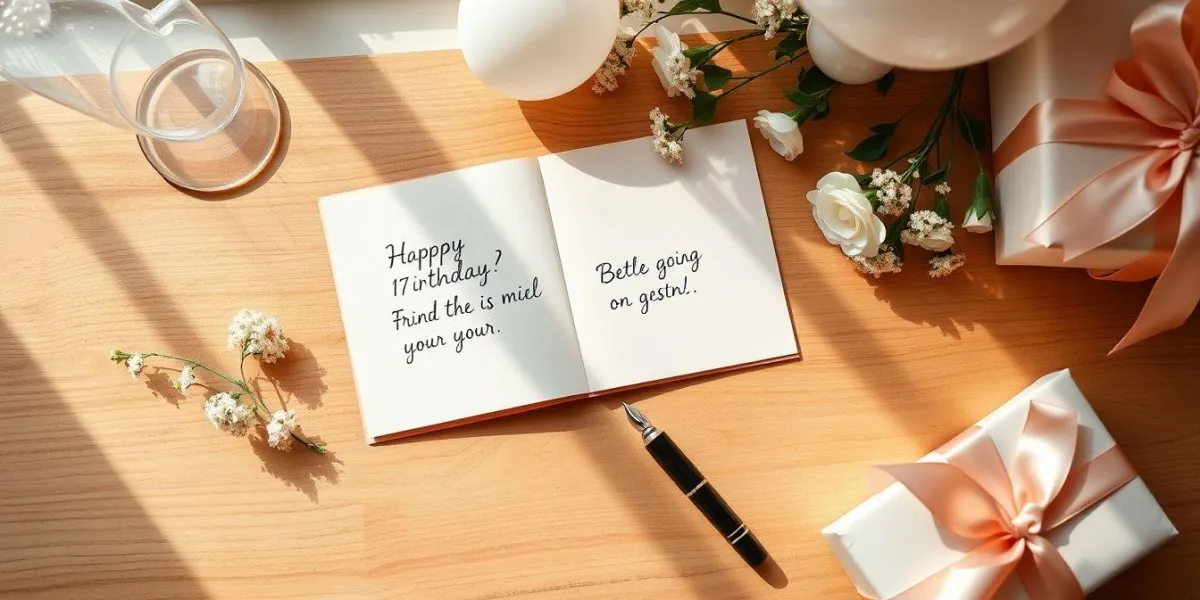 Happpy
17irthday?
Frind the is miel
your your.
Betle going
on gestnl..